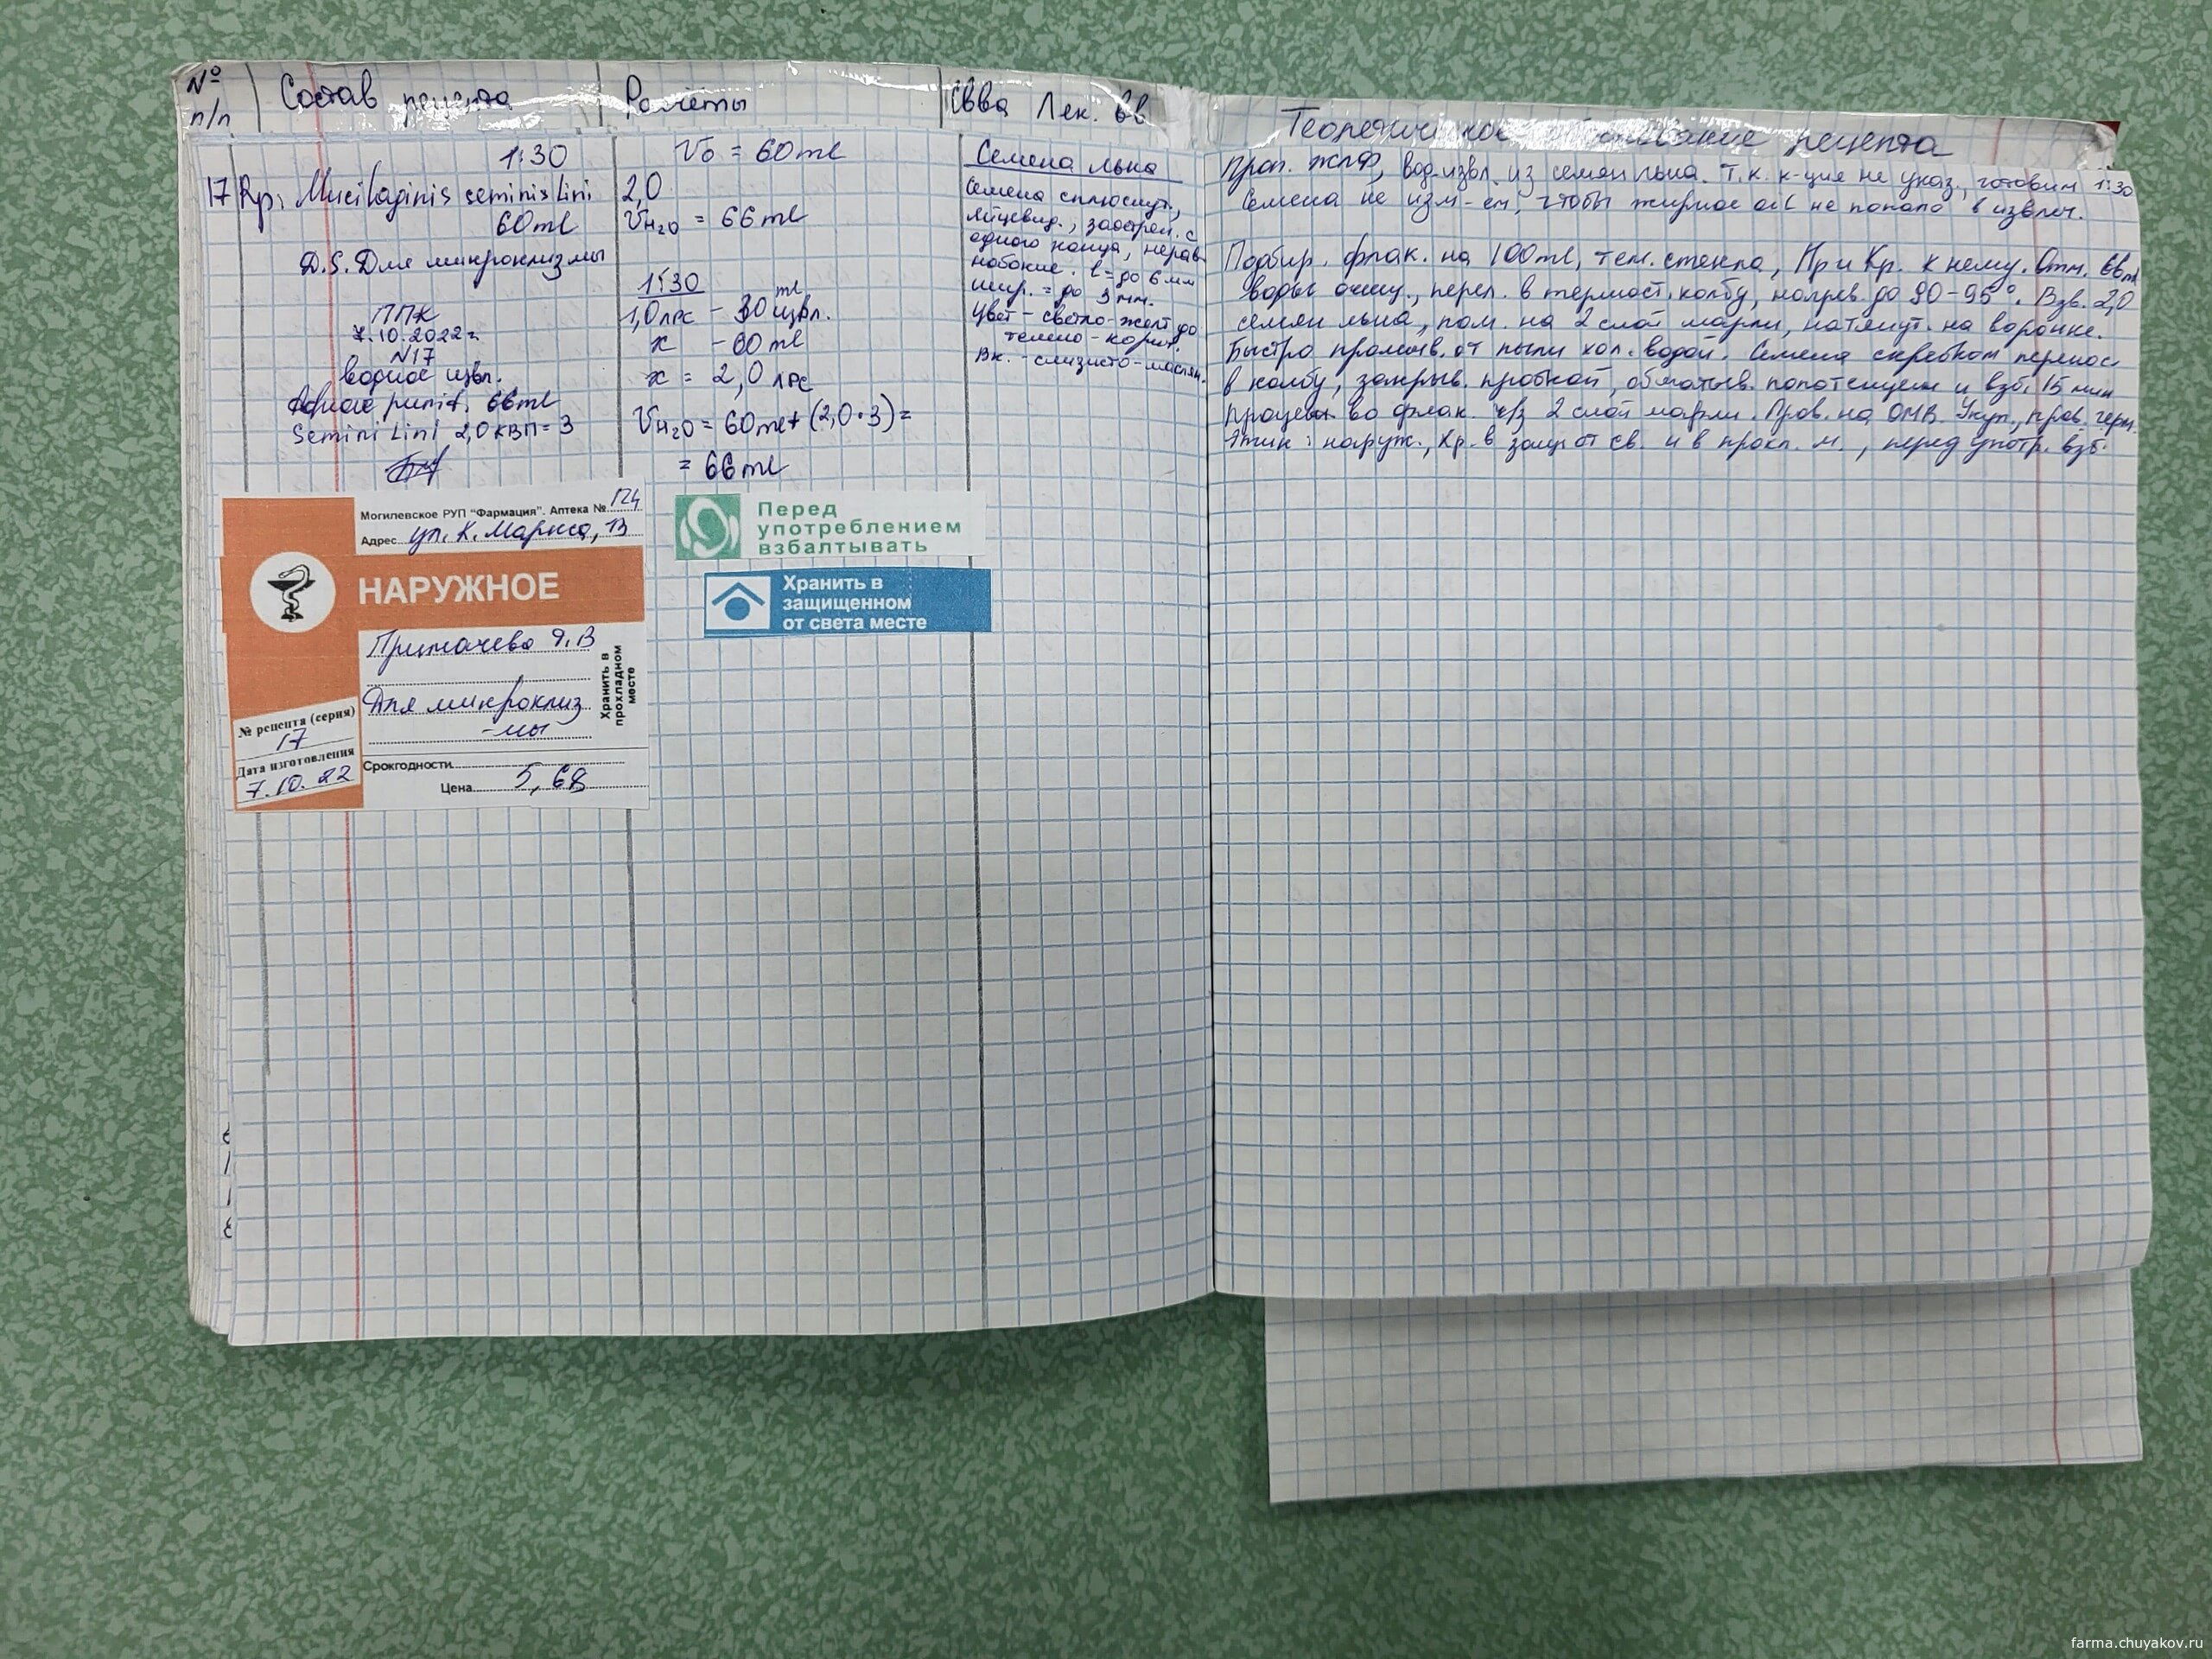 №
п/п
Состав рецепта
Расчёты
Свва Лек. вв
1:30
17 Rp: Mucilaginis seminis Lini
60ml
D.S. Для микроклизмы
ППК
7.10.2022г.
N17
водное извл.
Aquae purif. 66ml
Semini Lini 2,0 КВП=3
V₀ = 60ml
2,0
V H₂O = 66 ml
1:30
1,0 ЛРС – 30 ml извл.
x – 60 ml
x = 2,0 ЛРС
V H₂O = 60ml + (2,0·3) =
= 66 ml
Семена льна
Семена сплюснут.,
яйцевид., заострен. с
одного конца, нерав-
нобокие. l = до 6 мм
шир. = до 3 мм.
Цвет – светло-желт до
темно-корич.
Вк. – слизисто-маслян.
Могилевское РУП "Фармация". Аптека № 124
Адрес ул. К. Маркса, 13
НАРУЖНОЕ
Примачева Я.В
Для микроклиз
-мы
Хранить в
прохладном
месте
№ рецепта (серия)
17
Дата изготовления
7.10.22
Срок годности
Цена 5,68
Перед
употреблением
взбалтывать
Хранить в
защищенном
от света месте
рецепта
Проп. ЖЛФ, вод. извл. из семян льна. Т.к. к-ция не указ., готовим 1:30
Семена не изм-ем, чтобы жирное не попало в извлеч.
Подбир. флак. на 100ml, тем. стекла, Пр и Кр. к нему. Отм. 66ml
воды очищ., перел. в термост. колбу, нагрев. до 90-95°. Взв. 2,0
семян льна, пом. на 2 слой марли, натянут. на воронке.
Быстро промыв. от пыли хол. водой. Семена скребком перенос
в колбу, закрыв. пробкой, обматыв. полотенцем и взб. 15 мин
Процежив. во флак. ч/з 2 слой марли. Пров. на ОМВ. Укуп., пров. герм.
Этик: наруж., Хр. в защ. от св. и в прохл. м., перед употр. взб.
farma.chuyakov.ru